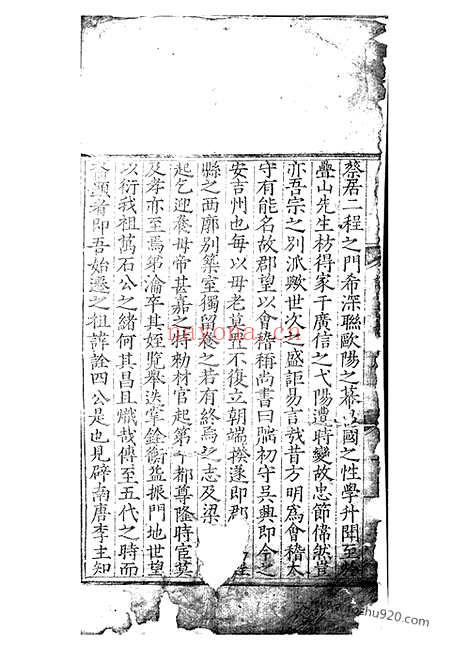 蔡居二程之門希深聯歐陽之幕國之性學升聞至
疊山先生枋得家于廣信之弋陽遭時變故忠節偉然豈
亦吾宗之別派歟世次之盛詎易言哉昔方明為會稽太
守有能名故郡望以會稽稱尚書曰朏初守吳興即今之
安吉州也每以母老莫置不復立朝端揆遂即郡
縣之西廓別築室獨留養之若有終焉之志及梁
起乞迎養母帝甚嘉之特勑材官起第于都尊隆時宦莫
及孝亦至焉弟瀹卒其姪覽舉迭掌銓衡益振門地世望
以衍我祖萬石公之緒何其昌且熾哉傳至五代之時而
顯者即吾始遷之祖諱詮四公是也見辟南唐李主知
nayona.cn
coshu920.com